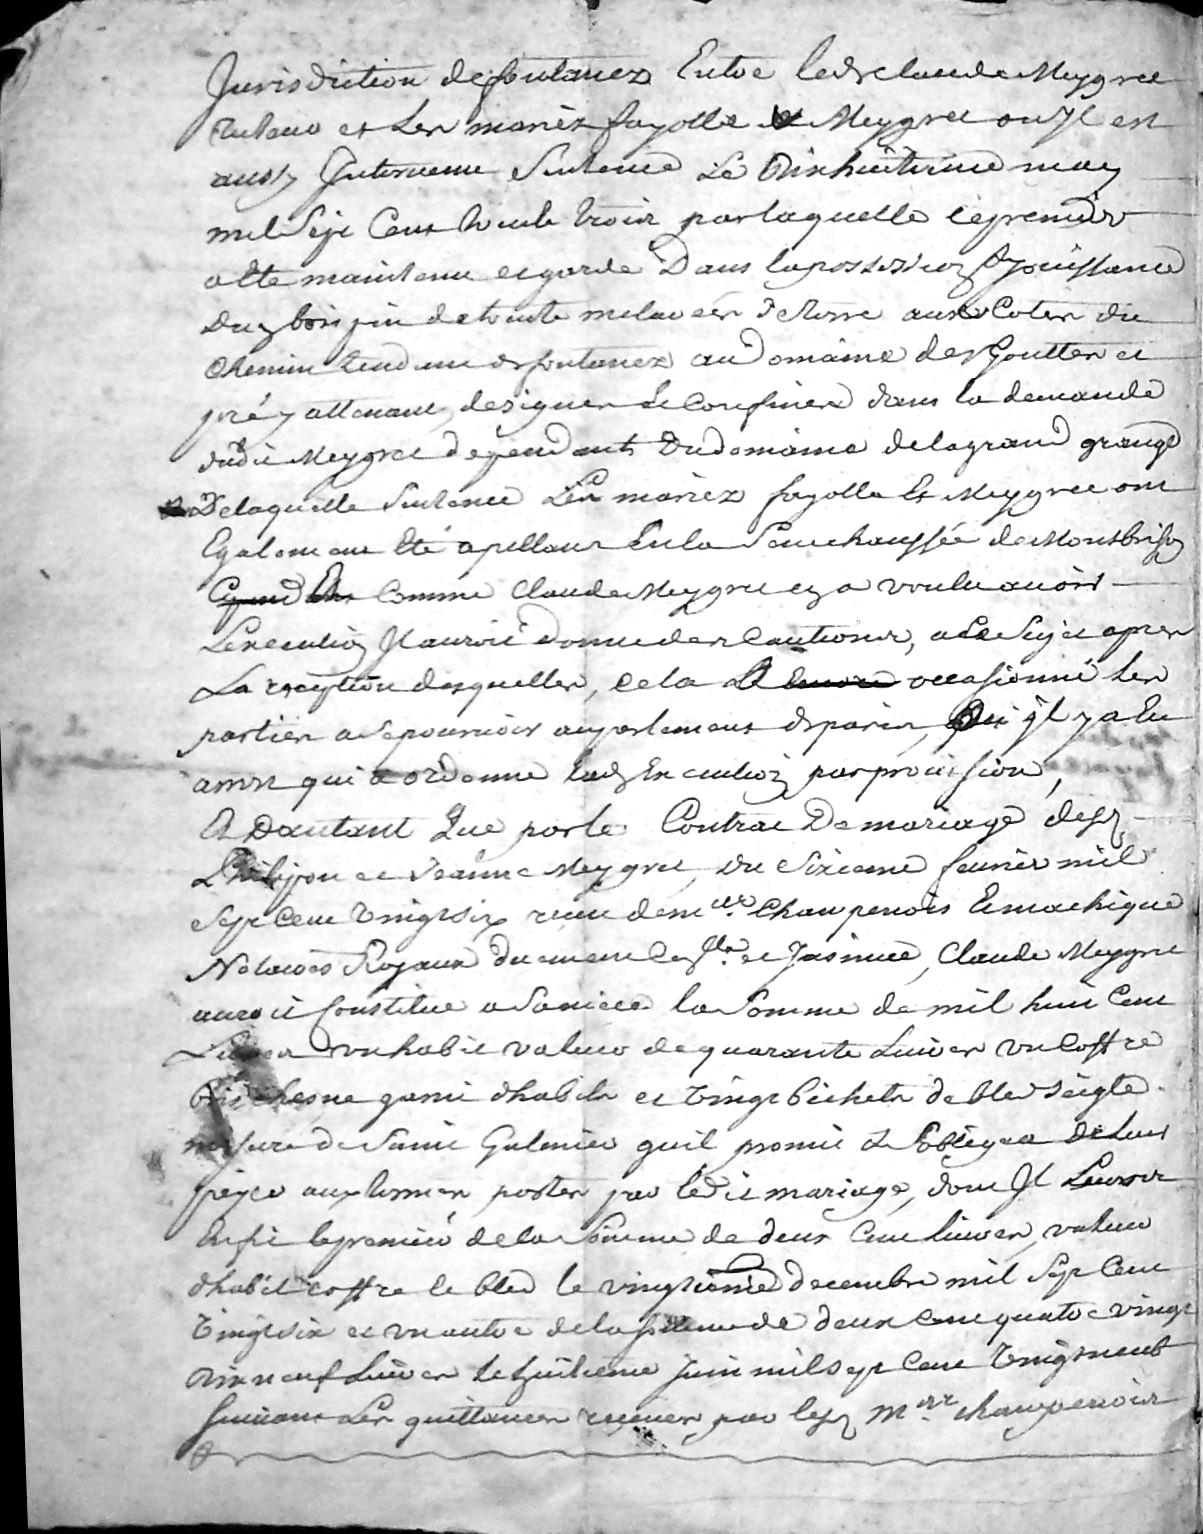 Jurisdiction de fontanez Entre ledt Claude Meygret
et Les mariés fayolle et Meygret ou Jl est
aussy Jntervenue Sentence Le Dixhuitieme may
mil Sept Cent trente trois par laquelle le premier
a été maintenu et gardé Dans la possession & Jouissance
Du bois pin de toute de terre aux Cotes du
Chemin tendant de fontanez au Domaine des Gouttes et
pré y attenant, designés & Confinés dans la demande
dudit Meygret dependants Du domaine de la grand grange
De laquelle Sentence Les mariez fayolle Et Meygret ont
Egalement Eté apellans En la Senechaussée de Montbrison
Comme Claude Meygret en a voulu avoir
L'execution Jl auroit donné des Cautions, a ce Sujet apres
La reception desquelles, cela occasionné Les
parties a se pourvoir au parlement de paris, Jl y a Eu
arrest qui a ordonné lad. Execution par provision,
Et D'autant Que par le Contrat De mariage desd.
Philipon et Jeanne Meygret, du Sixieme fevrier mil
Sept Cent Vingt six receu de mes. Champenois Et
Notaires Royaux duement Con.lé et Jnsinué, Claude Meygret
auroit Constitué a Sa niece la Somme de mil huit Cent
Livres un habit valeur de quarante Livres un Coffre
bois Chesne garni d'habits et Vingt bichets de bled Seigle
mesure de Saint Galmier quil promit & S'obligea de Leur
payer aux termes portés par ledit mariage, dont Jl
le premier de la Somme de deux Cent Livres, valeur
d'habit coffre le bled le vingtieme decembre mil Sept Cent
Vingt six et un autre de la somme de deux Cent quatre vingt
Dix neuf Livres le huitieme juin mil sept Cent Vingt neuf
Suivant Les quittances receues par lesd. Mes. Champenois